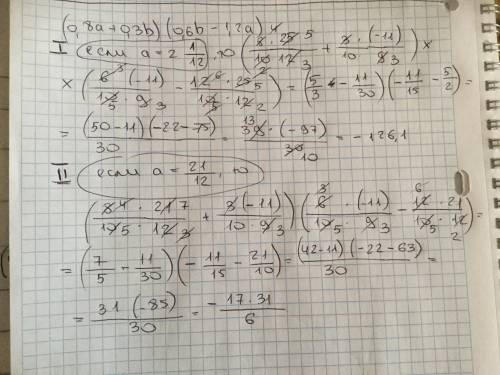 (0,8a+0,3b)(0,6b-1,2a)
I если a = 2 1/12, то (8·25/10·12 + 3·(-11)/10·9) ×
× (6·(-11)/10·9 - 12·25/10·12) = (5/3 - 11/30)(-11/15 - 5/2) =
= (50-11)(-22-75)/30 = 39·(-97)/30 = -126,1
II если a = 21/12, то
(8·21/10·12 + 3(-11)/10·9)(6·(-11)/10·9 - 12·21/10·12) =
= (7/5 - 11/30)(-11/15 - 21/10) = (42-11)(-22-63)/30 =
= 31(-85)/30 = -17·31/6